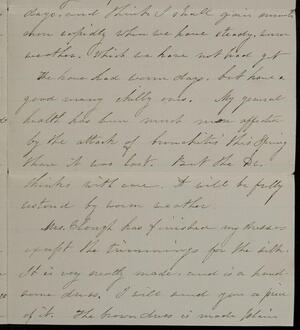 days, and think I shall gain much
more rapidly when we have steady, warm
weather. Which we have not had yet
We have had warm days, but have a
good many chilly ones. My general
health has been much more affected
by the attack of bronchitis this Spring
than it was last. But the Dr.
thinks with care. It will be fully
restored by warm weather.
Mrs. Clough has finished my dresses
except the trimmings for the silk.
It is very neatly made, and is a hand-
some dress. I will send you a piece
of it. The brown dress is made plain